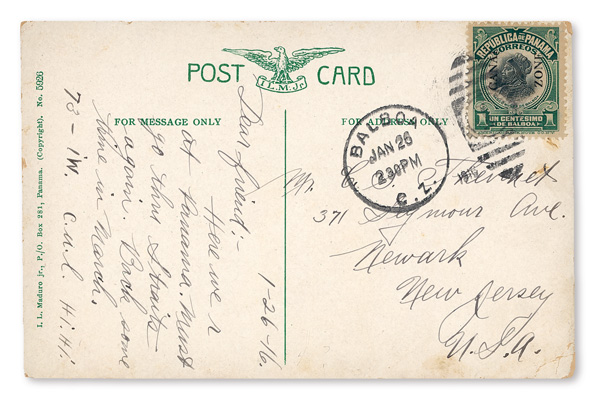 POST CARD
I.L.M.Jr.
FOR MESSAGE ONLY
FOR ADDRESS ONLY
I. L. Maduro jr., P./O. Box 281, Panama. (Copyright). No. 5926
1-26-16.
Dear friend:-
Here we r
at Panama. Must
go thru Straits
again. Back some
time in March.
73 - IW. C.U.L. Hi Hi
REPUBLICA DE PANAMA
CORREOS
CANAL ZONE
1 UN CENTESIMO 1
DE BALBOA
BALBOA
JAN 26
2 30PM
C. Z.
Mr. C. C.
371 Seymour Ave.
Newark
New Jersey
U.S.A.